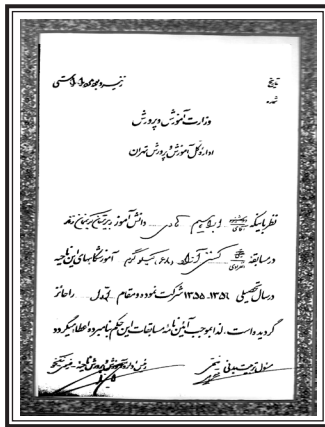 تاریخ
شماره
وزارت آموزش و پرورش
اداره کل آموزش و پرورش تهران
نظر باینکه ابراهیم هادی دانش آموز دبیرستان کریمخان زند
در مسابقه کشتی آزاد ۶۸ کیلوگرم آموزشگاههای این ناحیه
در سال تحصیلی ۱۳۵۶-۱۳۵۵ شرکت نموده و مقام اول را حائز
گردیده است. لذا بموجب آئین نامه مسابقات این حکم بنامبرده اعطا میگردد
مسئول تربیت بدنی
رئیس اداره آموزش و پرورش ناحیه